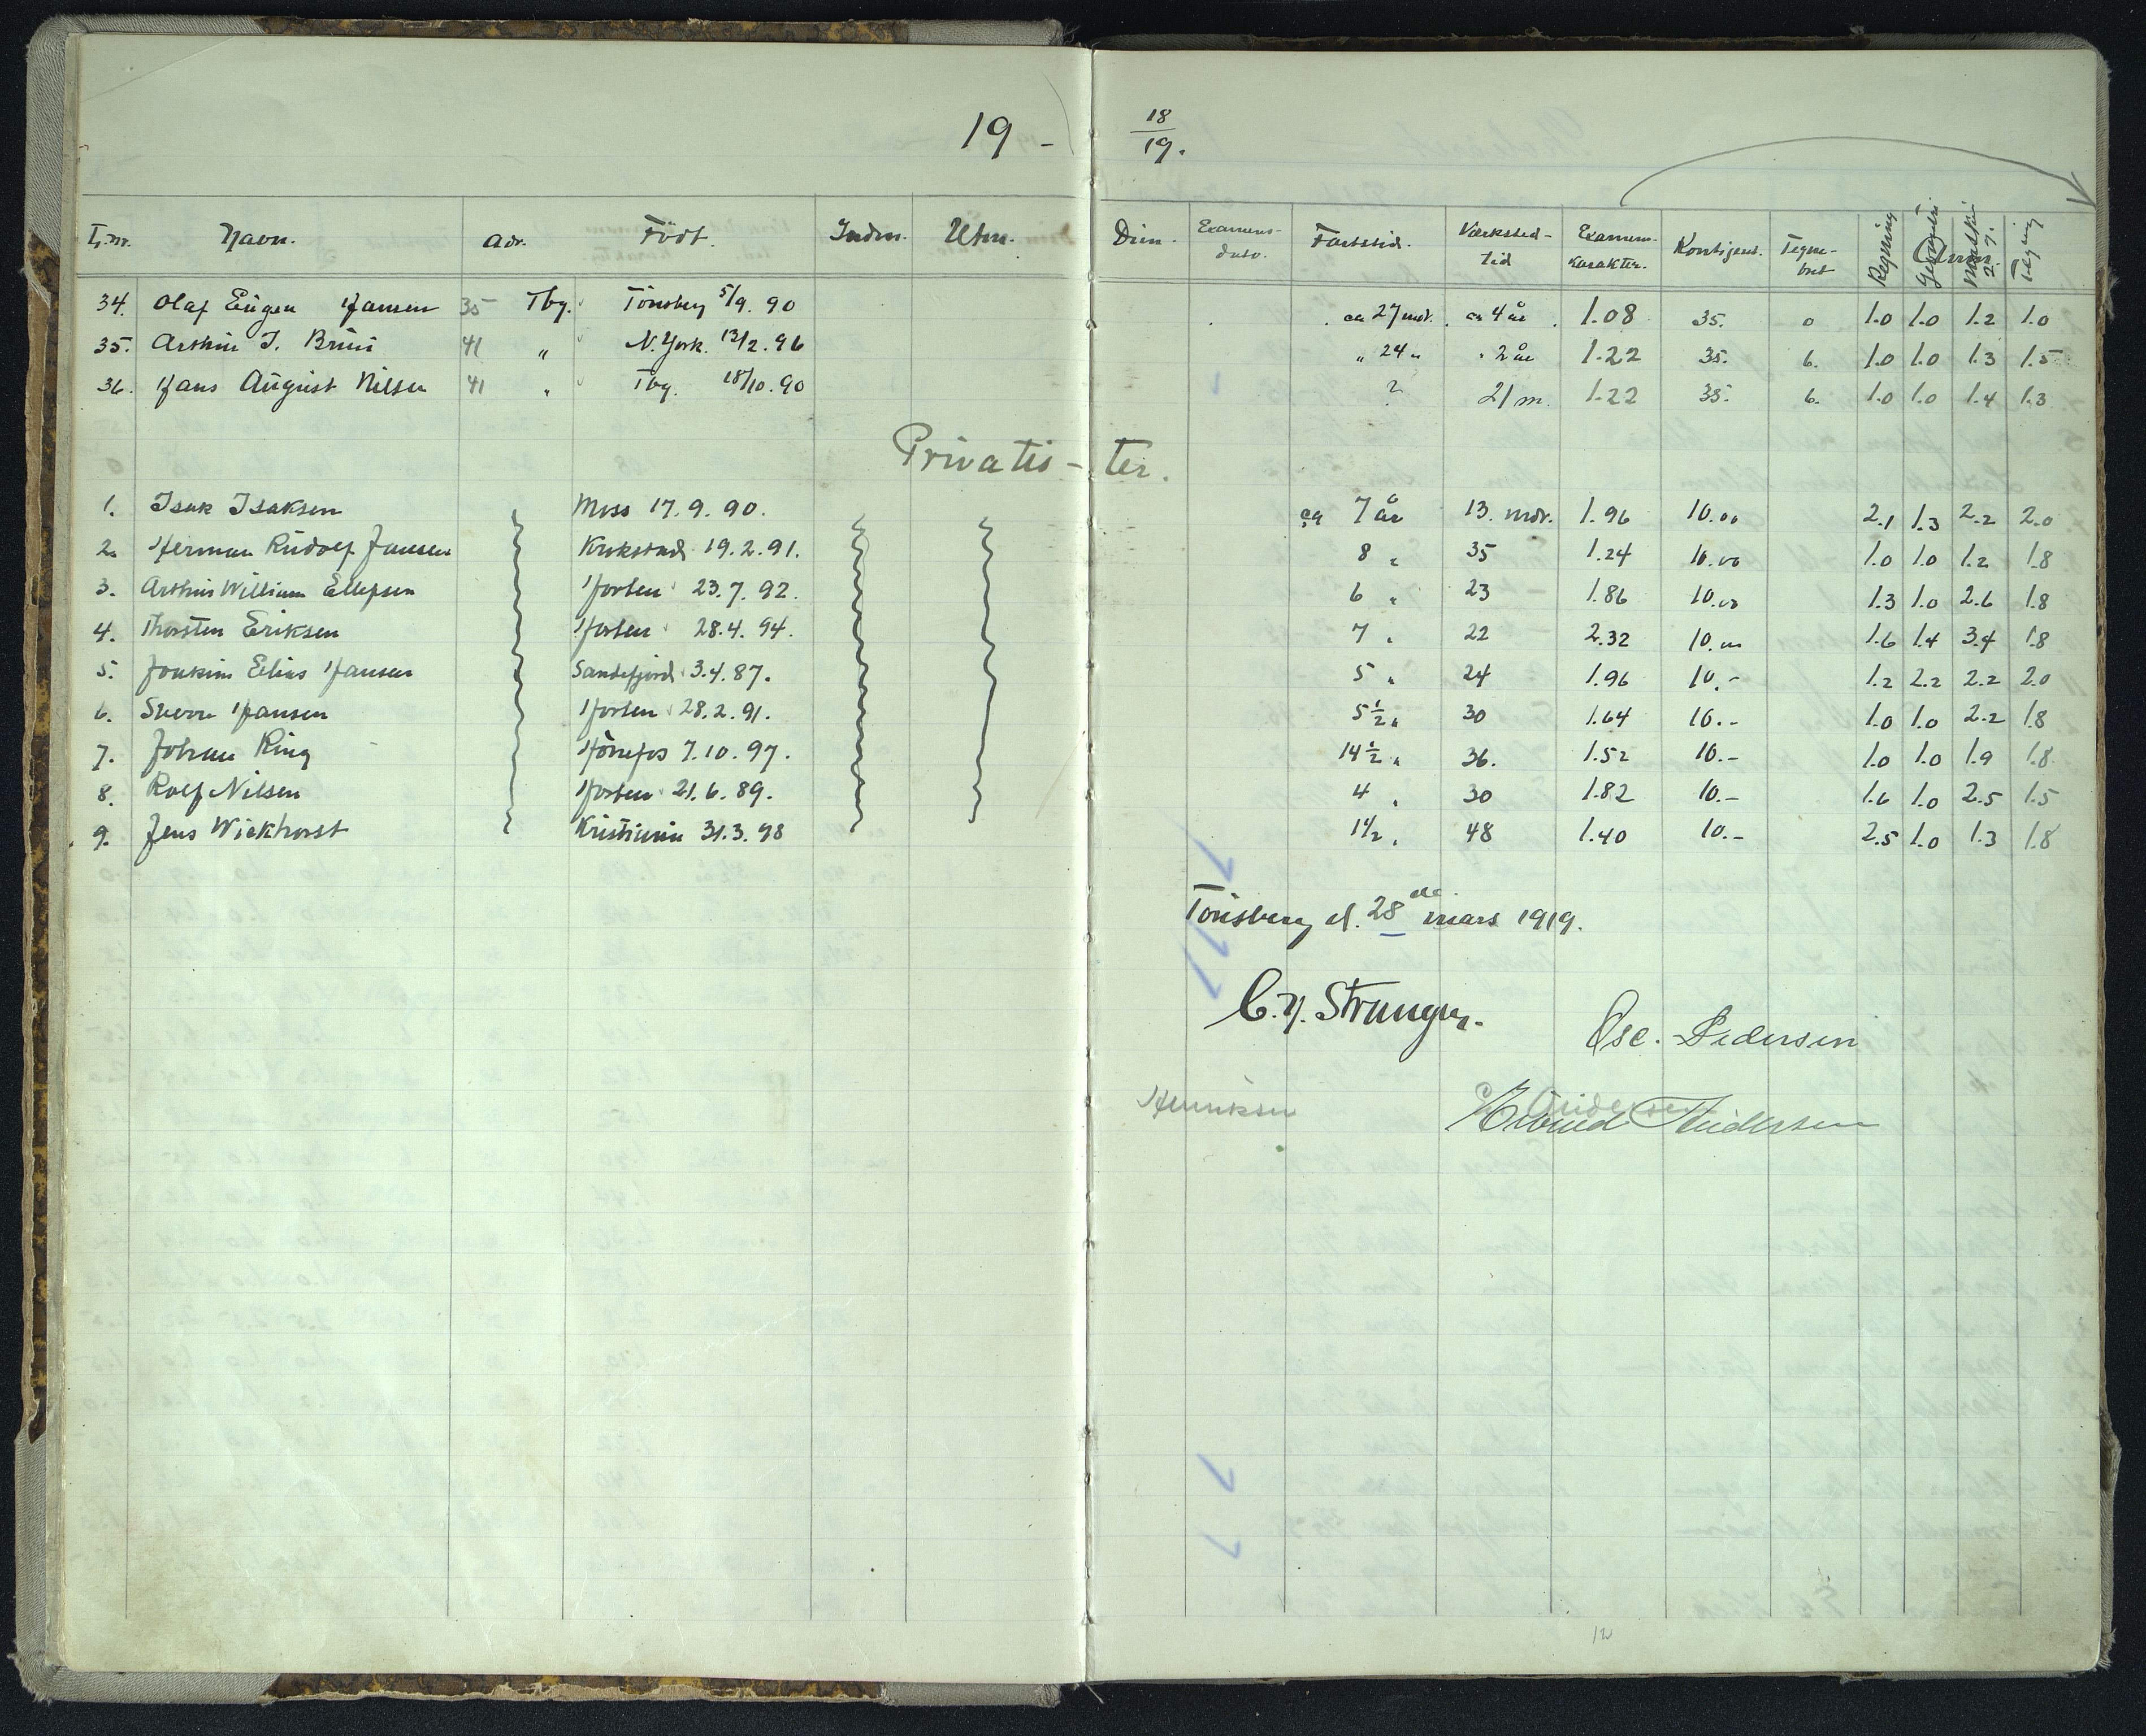 19 - 18/19.
L.nr. Navn. Adr. Födt. Indm. Utm. Dim. Examens- dato. Fartstid. Værksted- tid Examens- karakter. Kontigent. Tegne- bret Regning Geometri Norsk Tegning
34. Olaf Eugen Hansen 35 Tbg. Tönsberg 5/9. 90 ca 27 mdr. ca 4 år 1.08 35. 0 1.0 1.0 1.2 1.0
35. Arthur I. Bruu 41 " N. York. 12/2. 96 " 24 " " 2 år 1.22 35. 6. 1.0 1.0 1.3 1.5
36. Hans August Nilsen 41 " Tbg. 18/10. 90 ? 21 m. 1.22 35. 6. 1.0 1.0 1.4 1.3
Privatis - ter.
1. Isak Isaksen Moss 17. 9. 90. ca 7 år 13. mdr. 1.96 10.00 2.1 1.3 2.2 2.0
2. Herman Rudolf Jansen Krokstad 19.2.91. 8 " 35 1.24 10.00 1.0 1.0 1.2 1.8
3. Arthur William Ellefsen Horten 23.7.92. 6 " 23 1.86 10.00 1.3 1.0 2.6 1.8
4. Thorsten Eriksen Horten 28.4. 94. 7 " 22 2.32 10.00 1.6 1.4 3.4 1.8
5. Joakim Elias Hansen Sandefjord 3.4.87. 5 " 24 1.96 10.- 1.2 2.2 2.2 2.0
6. Sverre Hansen Horten 28.2.91. 5 1/2 " 30 1.64 10.- 1.0 1.0 2.2 1.8
7. Johan Ring Hönefos 7.10.97. 14 1/2 " 36. 1.52 10.- 1.0 1.0 1.9 1.8
8. Rolf Nilsen Horten 21.6.89. 4 " 30 1.82 10.- 1.6 1.0 2.5 1.5
9. Jens Wiekhorst Kristiania 31.3.98 1 1/2 " 48 1.40 10.- 2.5 1.0 1.3 1.8
Tönsberg d. 28de mars 1919.
C. N. Stranger.
Osc. Pedersen
Henriksen
Andersen
Andersen
12